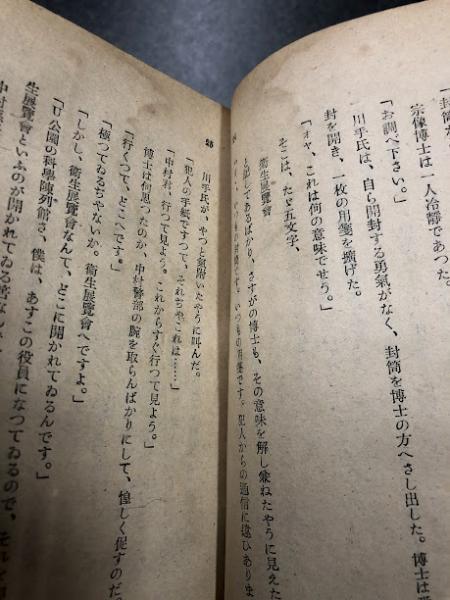 「封筒が
宗像博士は一人冷靜であつた。
「お調べ下さい。」
川手氏は、自ら開封する勇氣がなく、封筒を博士の方へさし出した。博士は
封を開き、一枚の用箋を擴げた。
「オヤ、これは何の意味でせう。」
そこは、たゞ五文字、
衛生展覽會
と記してあるばかり、さすがの博士も、その意味を解し兼ねたやうに見えた
いつもの用箋です。犯人からの通信に違ひありま
25
川手氏が、やつと氣附いたやうに叫んだ。
「犯人の手紙ですつて、それぢやこれは……」
「中村君、行つて見よう。これからすぐ行つて見よう。」
博士は何思つたのか、中村警部の腕を取らんばかりにして、惶しく促すのだ。
「行くつて、どこへです。」
「極つてゐるぢやないか。衛生展覽會へですよ。」
「しかし、衛生展覽會なんて、どこに開かれてゐるんです。」
「U公園の科學陳列館さ、僕は、あすこの役員になつてゐるので、それ
生展覽會といふのが開かれてゐる筈なんだ
中村